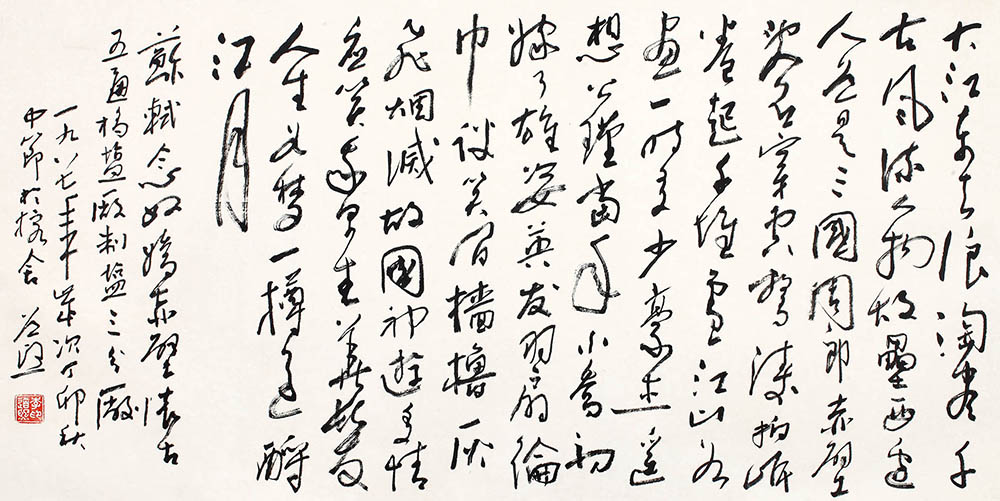 大江东去浪淘尽千
古风流人物故壘西边
人道是三國周郎赤壁
乱石穿空驚涛拍岸
卷起千堆雪江山如
画一时多少豪杰遥
想公瑾當年小喬初
嫁了雄姿英发羽扇綸
巾谈笑间檣櫓灰
飞烟滅故國神遊多情
应笑我早生華髮
人生如梦一樽还酹
江月
蘇軾念奴嬌赤壁怀古
五通橋塩厰制塩三分厰
一九八七年歲次丁卯秋
中節於舍